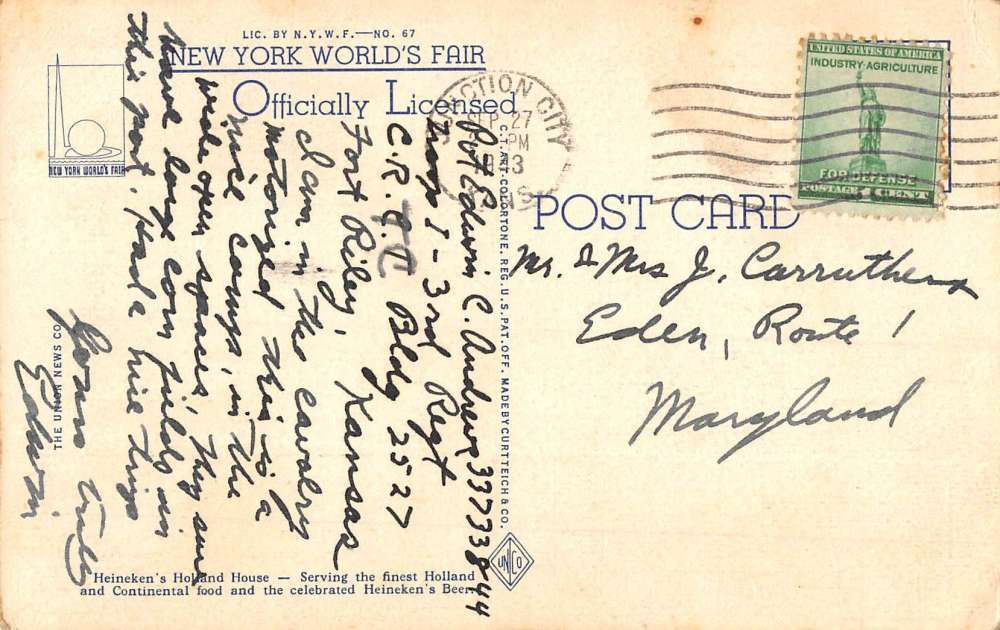 LIC. BY N.Y.W.F.—NO. 67
NEW YORK WORLD'S FAIR
Officially Licensed
NEW YORK WORLD'S FAIR
POST CARD
UNITED STATES OF AMERICA
INDUSTRY·AGRICULTURE
FOR DEFENSE
POSTAGE 1 CENT
JUNCTION CITY
SEP 27
PM
KANS
Pvt Edwin C. Andrews 33733844
Troop I - 3rd Regt
C.R.T.C Bldg 2527
Fort Riley, Kansas
I am in the cavalry
motorized this is a
nice camp, in the
wide open spaces, They sure
have large corn fields in
this part, had a nice trip
Yours truly
Edwin
Mr. & Mrs J. Carruthers
Eden, Route 1
Maryland
THE UNION NEWS CO.
C.T. ART-COLORTONE, REG. U.S. PAT. OFF. MADE BY CURT TEICH & CO.
UNCO
Heineken's Holland House — Serving the finest Holland
and Continental food and the celebrated Heineken's Beer.